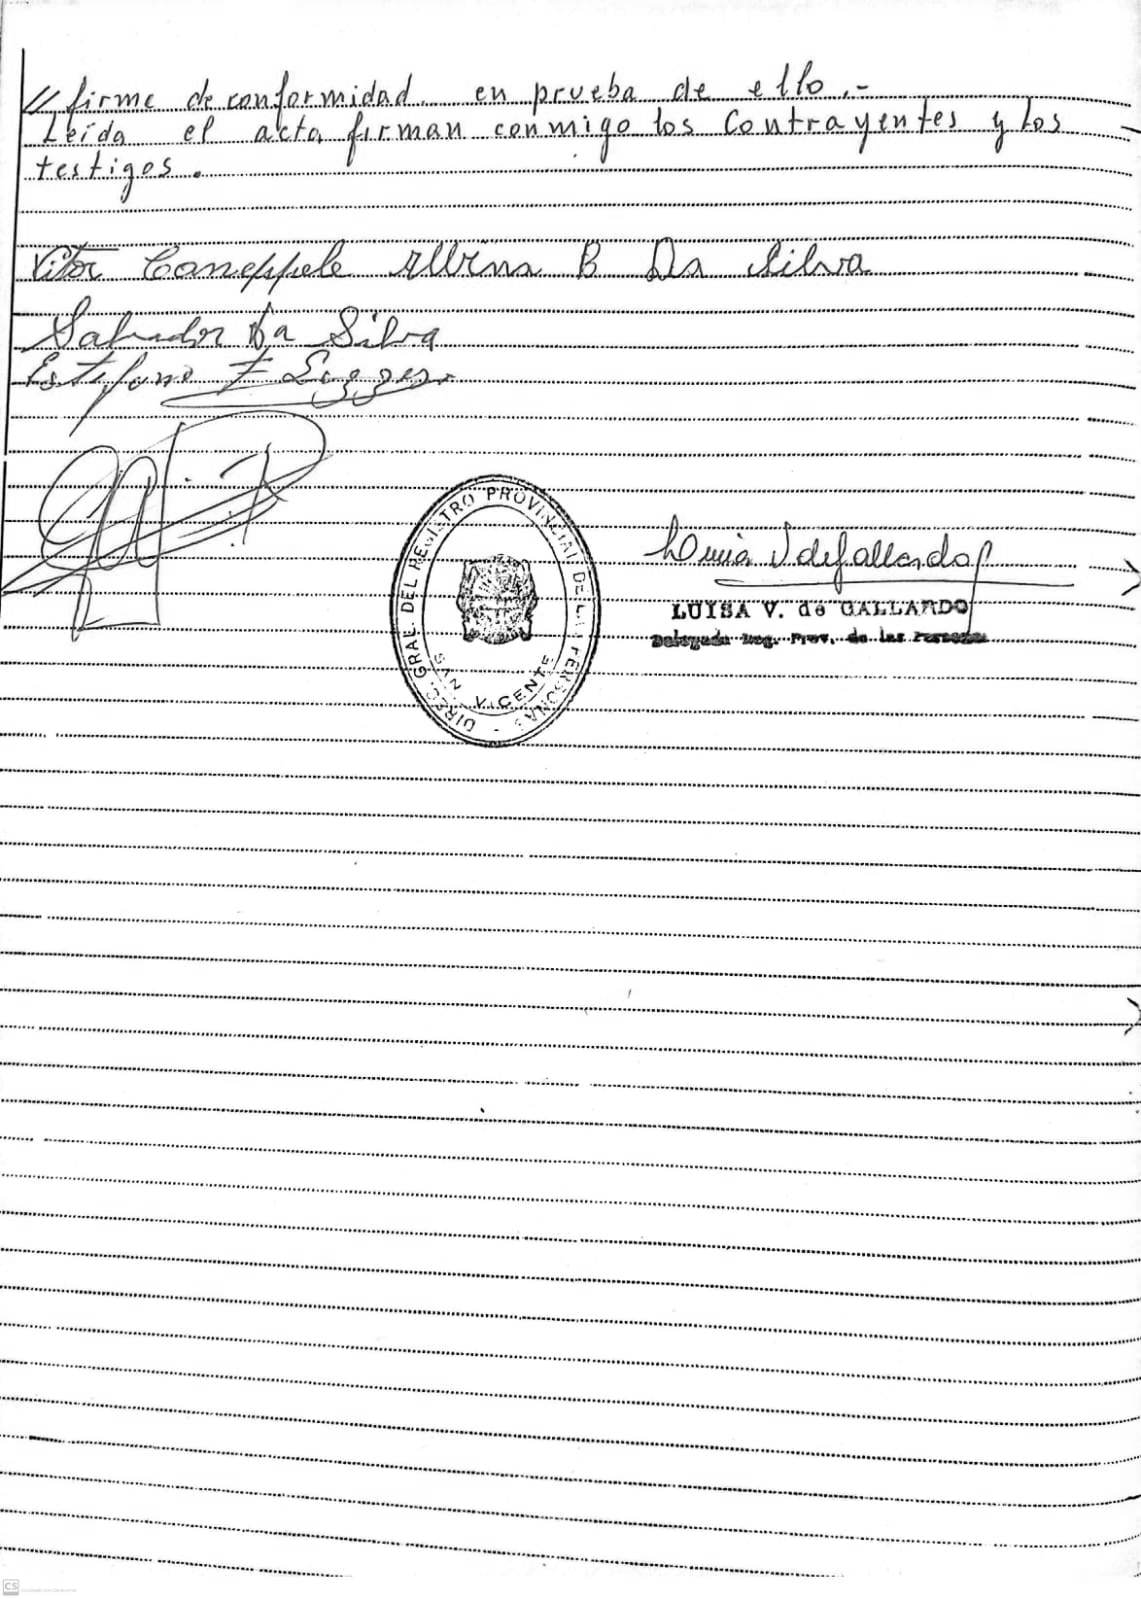 // firme de conformidad en prueba de ello.-
Leída el acta firman conmigo los Contrayentes y los
testigos.
Vitor Coneppele Albina B Da Silva
Salvador Da Silva
Estefano F
DIREC. GRAL. DEL REGISTRO PROVINCIAL DE LAS PERSONAS
SAN VICENTE
LUISA V. de GALLARDO
Delegada Reg. Prov. de las Personas
CS